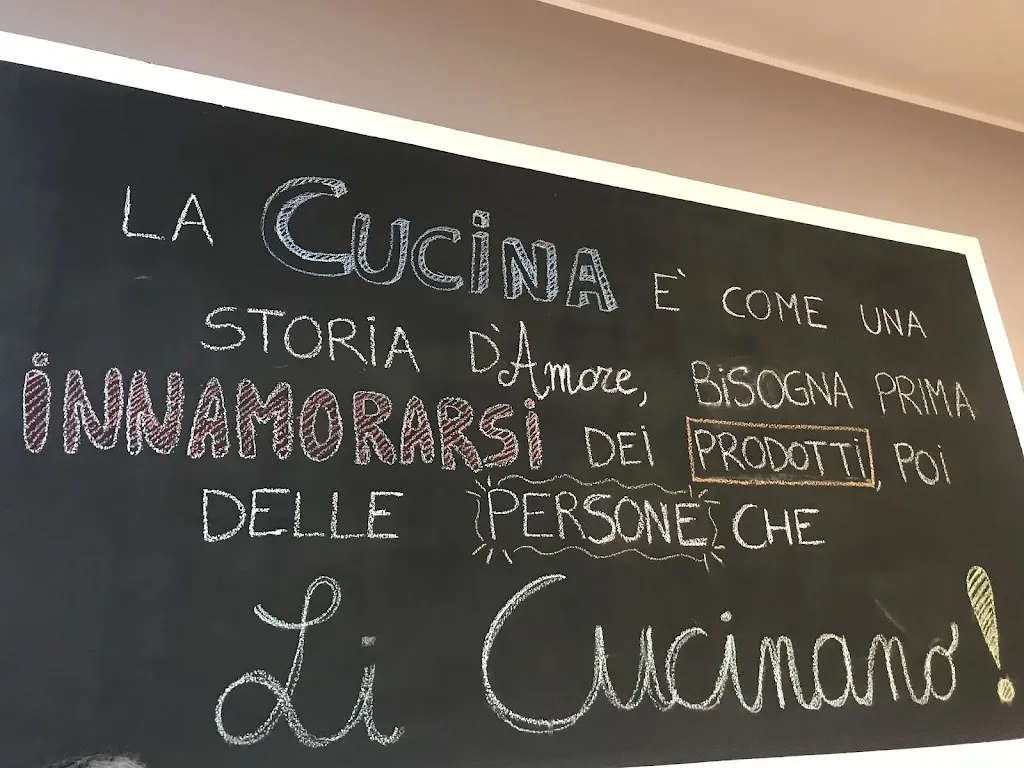 LA CUCINA E' COME UNA
STORIA D'Amore, BISOGNA PRIMA
INNAMORARSI DEI PRODOTTI, POI
DELLE PERSONE CHE
Li Cucinano!